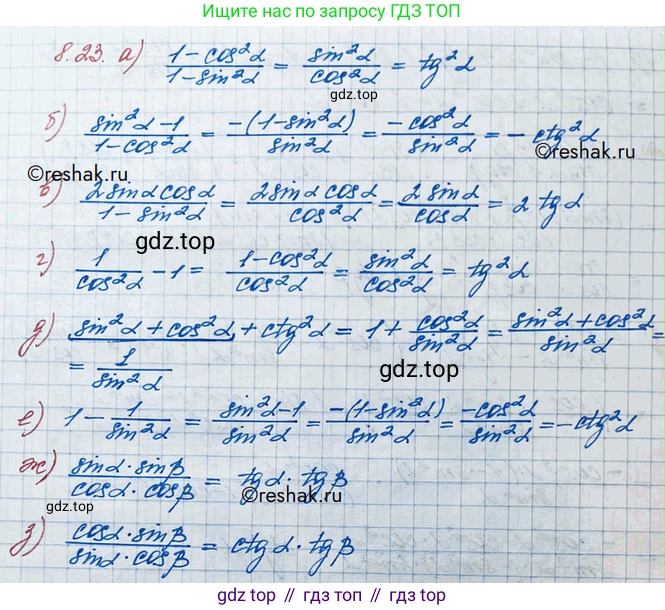 Ищите нас по запросу ГДЗ ТОП
8.23. а) (1-cos²α)/(1-sin²α) = sin²α/cos²α = tg²α
gdz.top
б) (sin²α-1)/(1-cos²α) = -(1-sin²α)/sin²α = -cos²α/sin²α = -ctg²α
©reshak.ru
©reshak.ru
в) 2sinα cosα/(1-sin²α) = 2sinα cosα/cos²α = 2 sinα/cosα = 2 tgα
gdz.top
г) 1/cos²α - 1 = (1-cos²α)/cos²α = sin²α/cos²α = tg²α
д) sin²α + cos²α + ctg²α = 1 + cos²α/sin²α = (sin²α + cos²α)/sin²α =
= 1/sin²α
gdz.top
е) 1 - 1/sin²α = (sin²α-1)/sin²α = -(1-sin²α)/sin²α = -cos²α/sin²α = -ctg²α
ж) (sinα · sinβ)/(cosα · cosβ) = tgα · tgβ
©reshak.ru
gdz.top
з) (cosα · sinβ)/(sinα · cosβ) = ctgα · tgβ
gdz.top // гдз.топ // gdz.top // гдз.топ